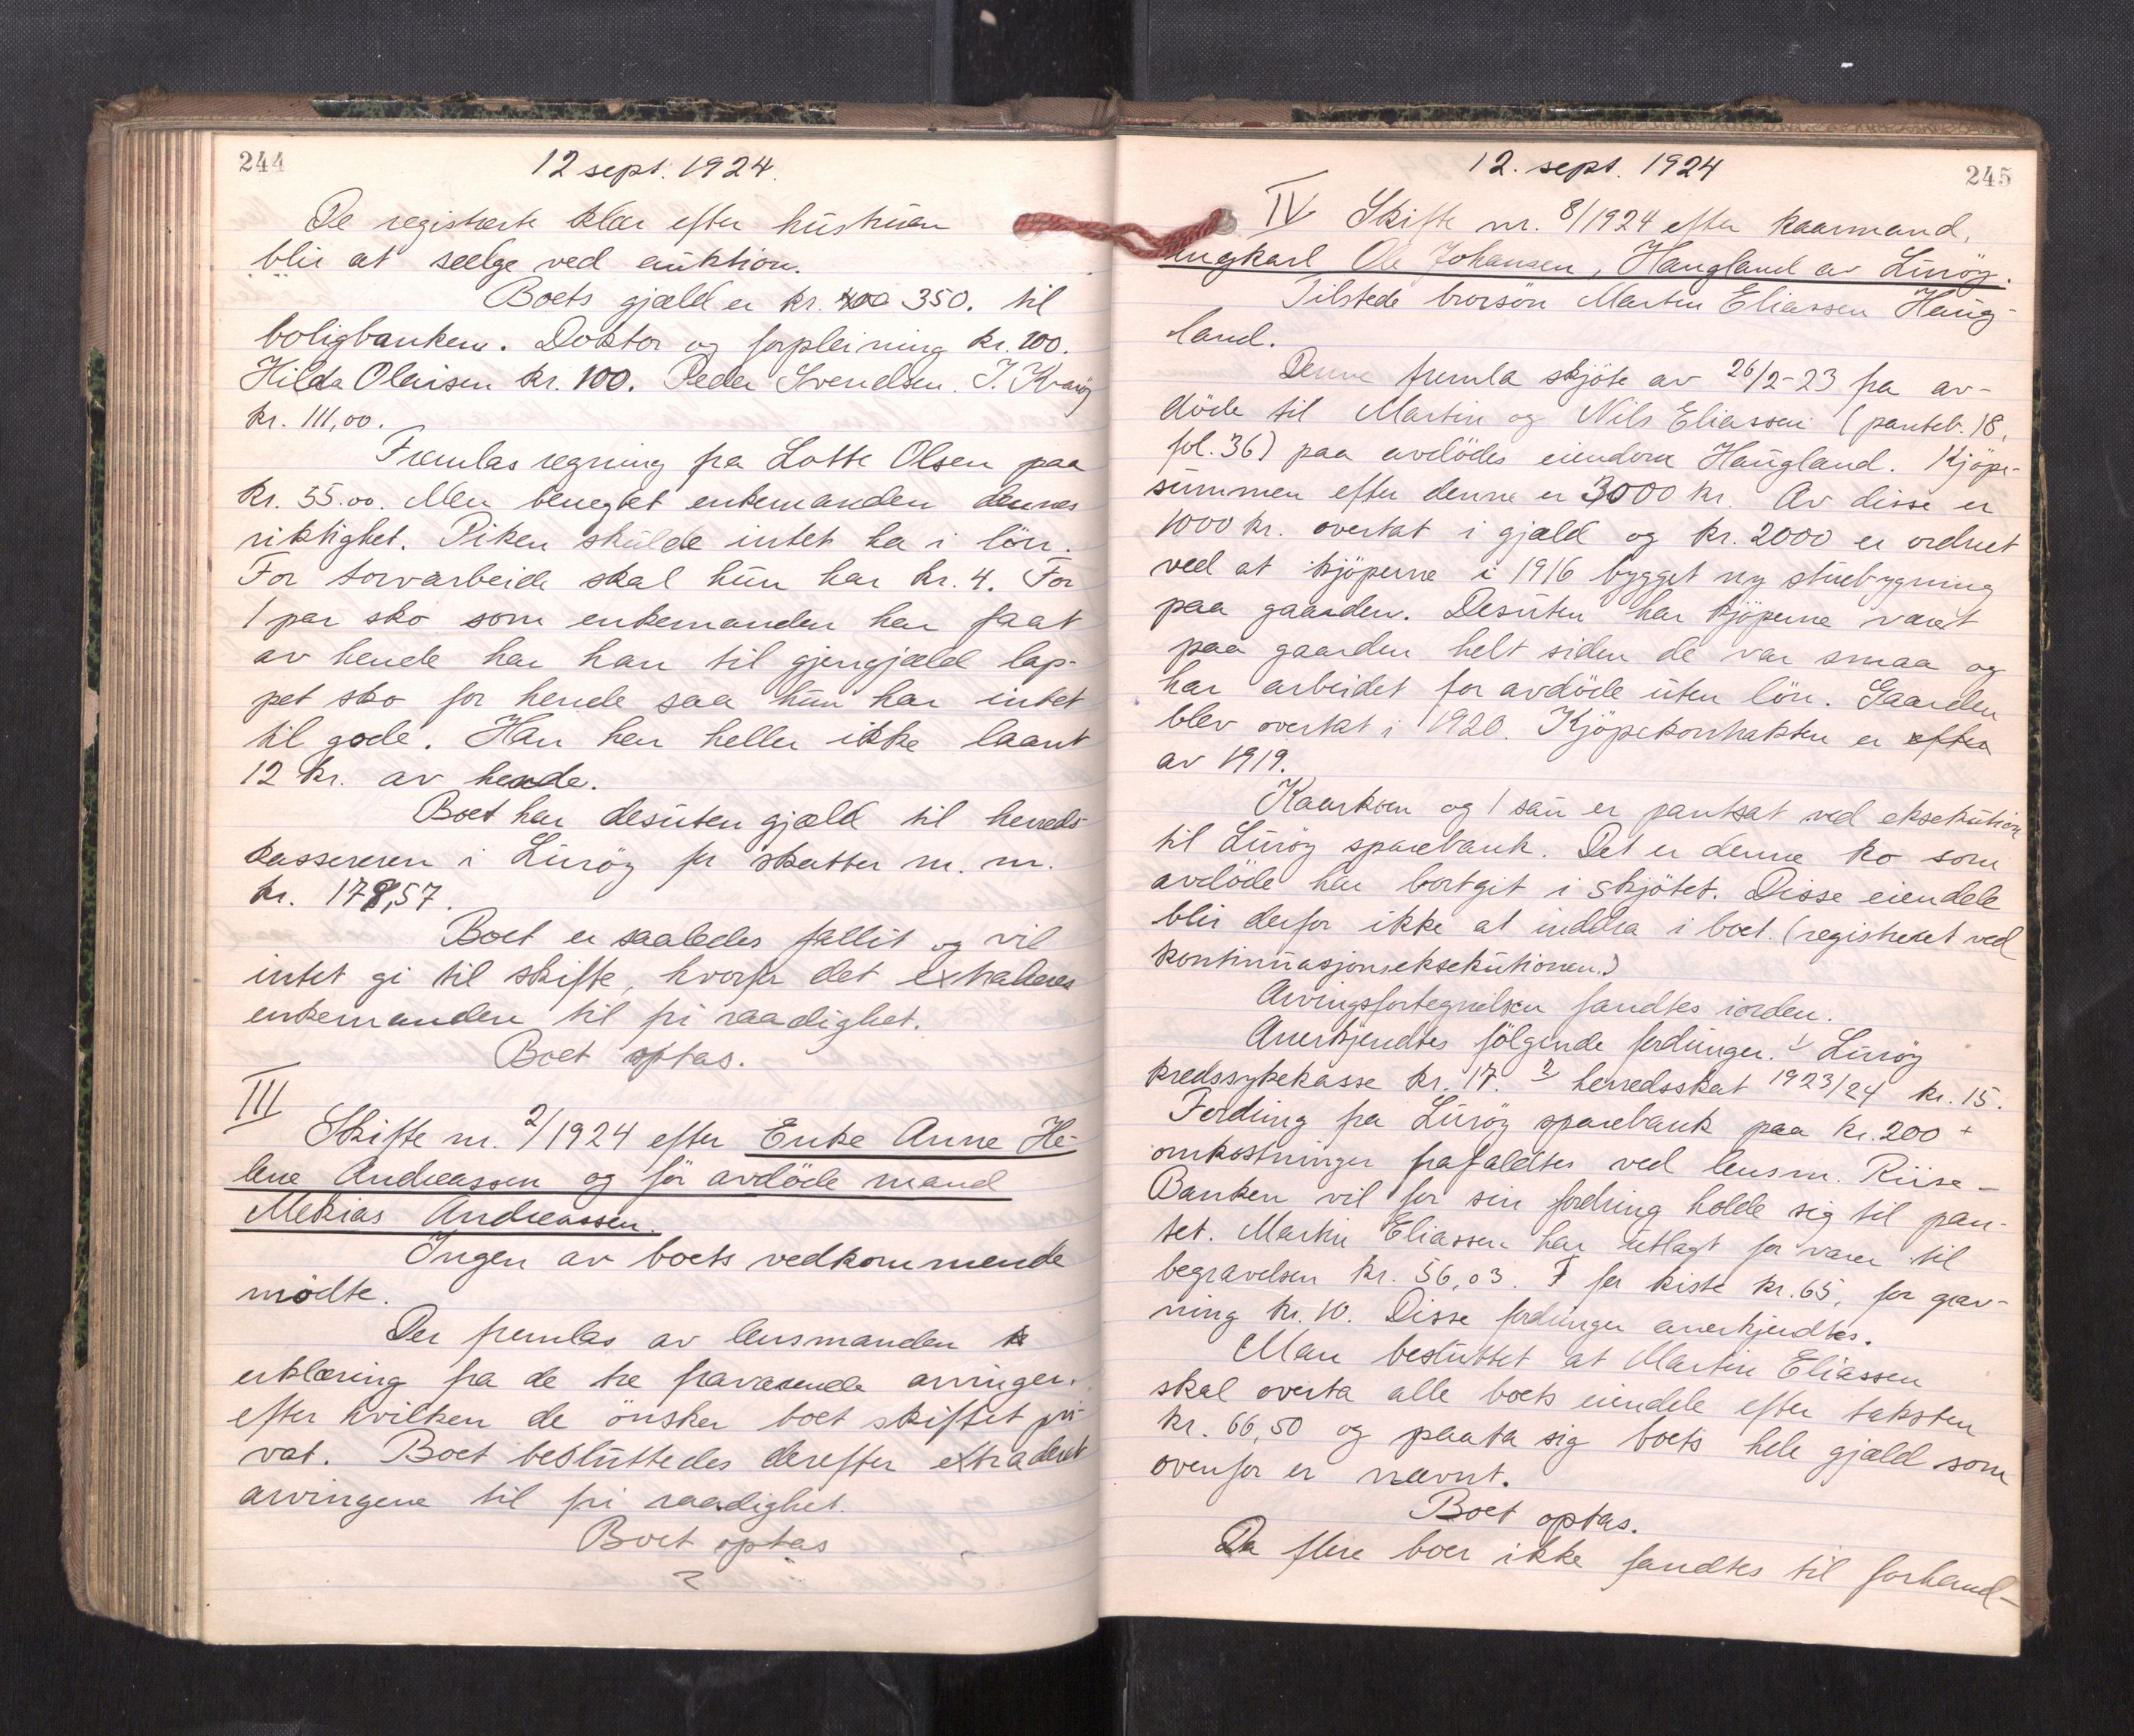 244
12 sept. 1924.
De registrerte klær efter hustruen
blir at sælge ved auktion.
Boets gjæld er kr. 400 350. til
boligbanken. Doktor og forpleining kr. 100.
Hilda Olaisen kr. 100. Peder Svendsen. I. Kvarøy
kr. 111,00.
Fremlas regning fra Lotte Olsen paa
kr. 55.00. Men benegtet enkemanden dennes
riktighet. Piken skulde intet ha i lön.
For torvarbeide skal hun har kr. 4. For
1 par sko som enkemanden har faat
av hende har han til gjengjæld lap-
pet sko for hende saa hun har intet
til gode. Han har heller ikke laant
12 kr. av hende.
Boet har desuten gjæld til herreds-
kassereren i Luröy for skatter m. m.
kr. 178,57.
Boet er saaledes fallit og vil
intet gi til skifte, hvorfor det extraderes
enkemanden til fri raadighet.
Boet optas.
III
Skifte nr. 2/1924 efter Enke Anne He-
lene Andreassen og før avdöde mand
Mekias Andreassen.
Ingen av boets vedkommende
mödte.
Der fremlas av lensmanden
erklæring fra de tre fraværende arvinger.
efter hvilken de önsker boet skiftet pri-
vat. Boet besluttedes derefter extradert
arvingene til fri raadighet.
Boet optas
245
12. sept. 1924
IV Skifte nr. 8/1924 efter kaarmand,
ungkarl Ole Johansen, Haugland av Luröy.
Tilstede brorsön Martin Eliassen Haug-
land.
Denne fremla skjöte av 26/2-23 fra av-
döde til Martin og Nils Eliassen (panteb. 18,
fol. 36) paa avdödes eiendom Haugland. Kjöpe-
summen efter denne er 3000 kr. Av disse er
1000 kr. overtat i gjæld og kr. 2000 er ordnet
ved at kjöperne i 1916 bygget ny stuebygning
paa gaarden. Desuten har kjöperne været
paa gaarden helt siden de var smaa og
har arbeidet for avdöde uten lön. Gaarden
blev overtat i 1920. Kjöpekontrakten er efter
av 1919.
Kaarkoen og 1 sau er pantsat ved eksekution
til Luröy sparebank. Det er denne ko som
avdöde har bortgit i skjötet. Disse eiendele
blir derfor ikke at inddra i boet. (registreret ved
kontinuasjonseksekutionen.)
Arvingsfortegnelsen fandtes iorden.
Anerkjendtes fölgende fordringer. 1/ Luröy
kredssykekasse kr. 17. 2/ herredsskat 1923/24 kr. 15.
Fordring fra Luröy sparebank paa kr. 200 +
omkostninger frafaldtes ved lensm. Riise –
Banken vil for sin fordring holde sig til pan-
tet. Martin Eliassen har utlagt for varer til
begravelsen kr. 56,03. for kiste kr. 65, for grav-
ning kr. 10. Disse fordringer anerkjendtes.
Man besluttet at Martin Eliassen
skal overta alle boets eiendele efter taksten
kr. 66,50 og paata sig boets hele gjæld som
ovenfor er nævnt.
Boet optas.
Da flere boer ikke fandtes til forhand-